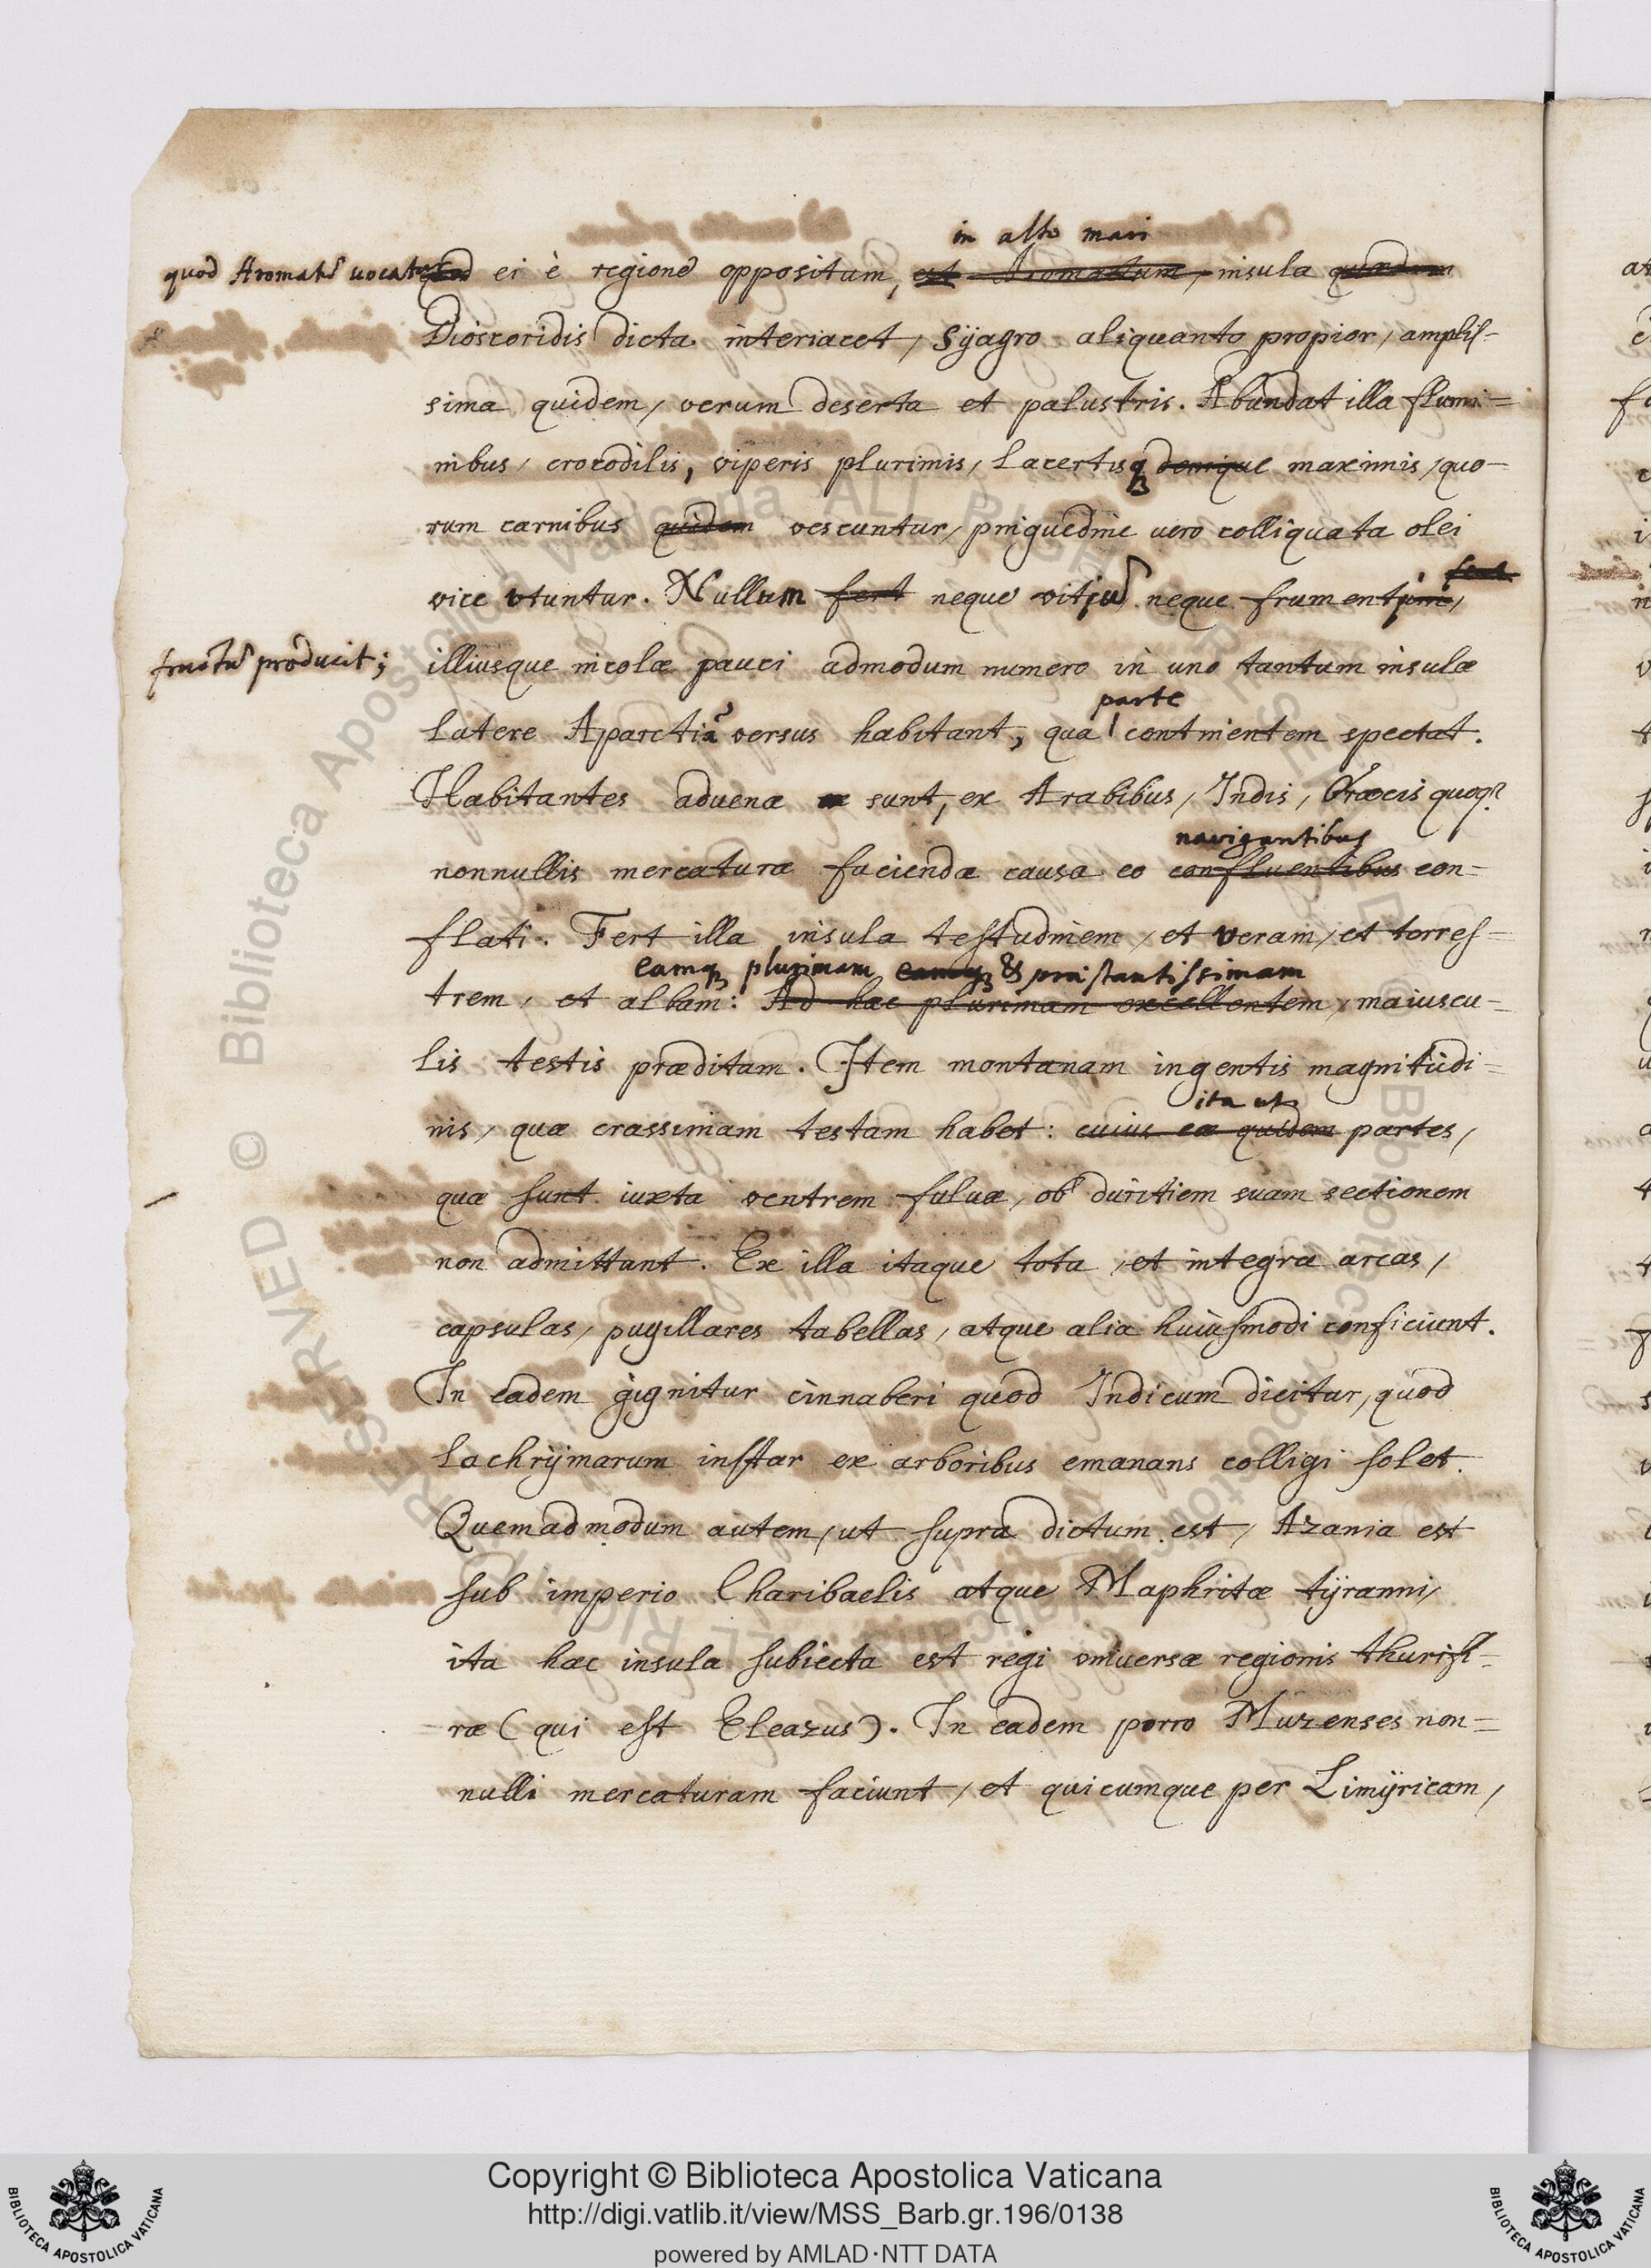 in alto mari
quod Aromatū vocatur quod ei è regione oppositum, est Aromatum, insula quædam
Dioscoridis dicta interiacet, Syagro aliquanto propior, amplis-
sima quidem, verum deserta et palustris. Abundat illa flumi=
nibus, crocodilis, viperis plurimis, lacertisq₃ denique maximis, quo-
rum carnibus quidem vescuntur, pinguedine vero colliquata olei
vice vtuntur. Nullum fert neque vitiū neque frumentini,
fructū producit; illiusque incolæ pauci admodum numero in uno tantum insulæ
parte
latere Aparctiā versus habitant, qua continentem spectat.
Habitantes aduenæ sunt, ex Arabibus, Indis, Græcis quoq₃
navigantibus
nonnullis mercaturæ faciendæ causa eo confluentibus con=
flati. Fert illa insula testudinem, et veram, et torres=
eamq₃ plurimam eamq₃ & præstantissimam
trem, et albam: Ad hæc plurimam excellentem, maiuscu-
lis testis præditam. Item montanam ingentis magnitudi=
ita ut
nis, quæ crassimam testam habet: cuius eæ quidem partes,
quæ sunt iuxta ventrem fuluæ, ob duritiem suam sectionem
non admittant. Ex illa itaque tota, et integra arcas,
capsulas, pugillares tabellas, atque alia huiusmodi conficiunt.
In eadem gignitur cinnaberi quod Indicum dicitur, quod
lachrymarum instar ex arboribus emanans colligi solet.
Quemadmodum autem, ut supra dictum est, Azania est
sub imperio Charibaelis atque Maphritæ tyranni,
ita hæc insula subiecta est regi vniuersæ regionis thurife=
ræ (qui est Eleazus). In eadem porro Muzenses non=
nulli mercaturam faciunt, et quicumque per Limyricam,
Copyright © Biblioteca Apostolica Vaticana
http://digi.vatlib.it/view/MSS_Barb.gr.196/0138
powered by AMLAD·NTT DATA
BIBLIOTECA APOSTOLICA VATICANA
BIBLIOTECA APOSTOLICA VATICANA